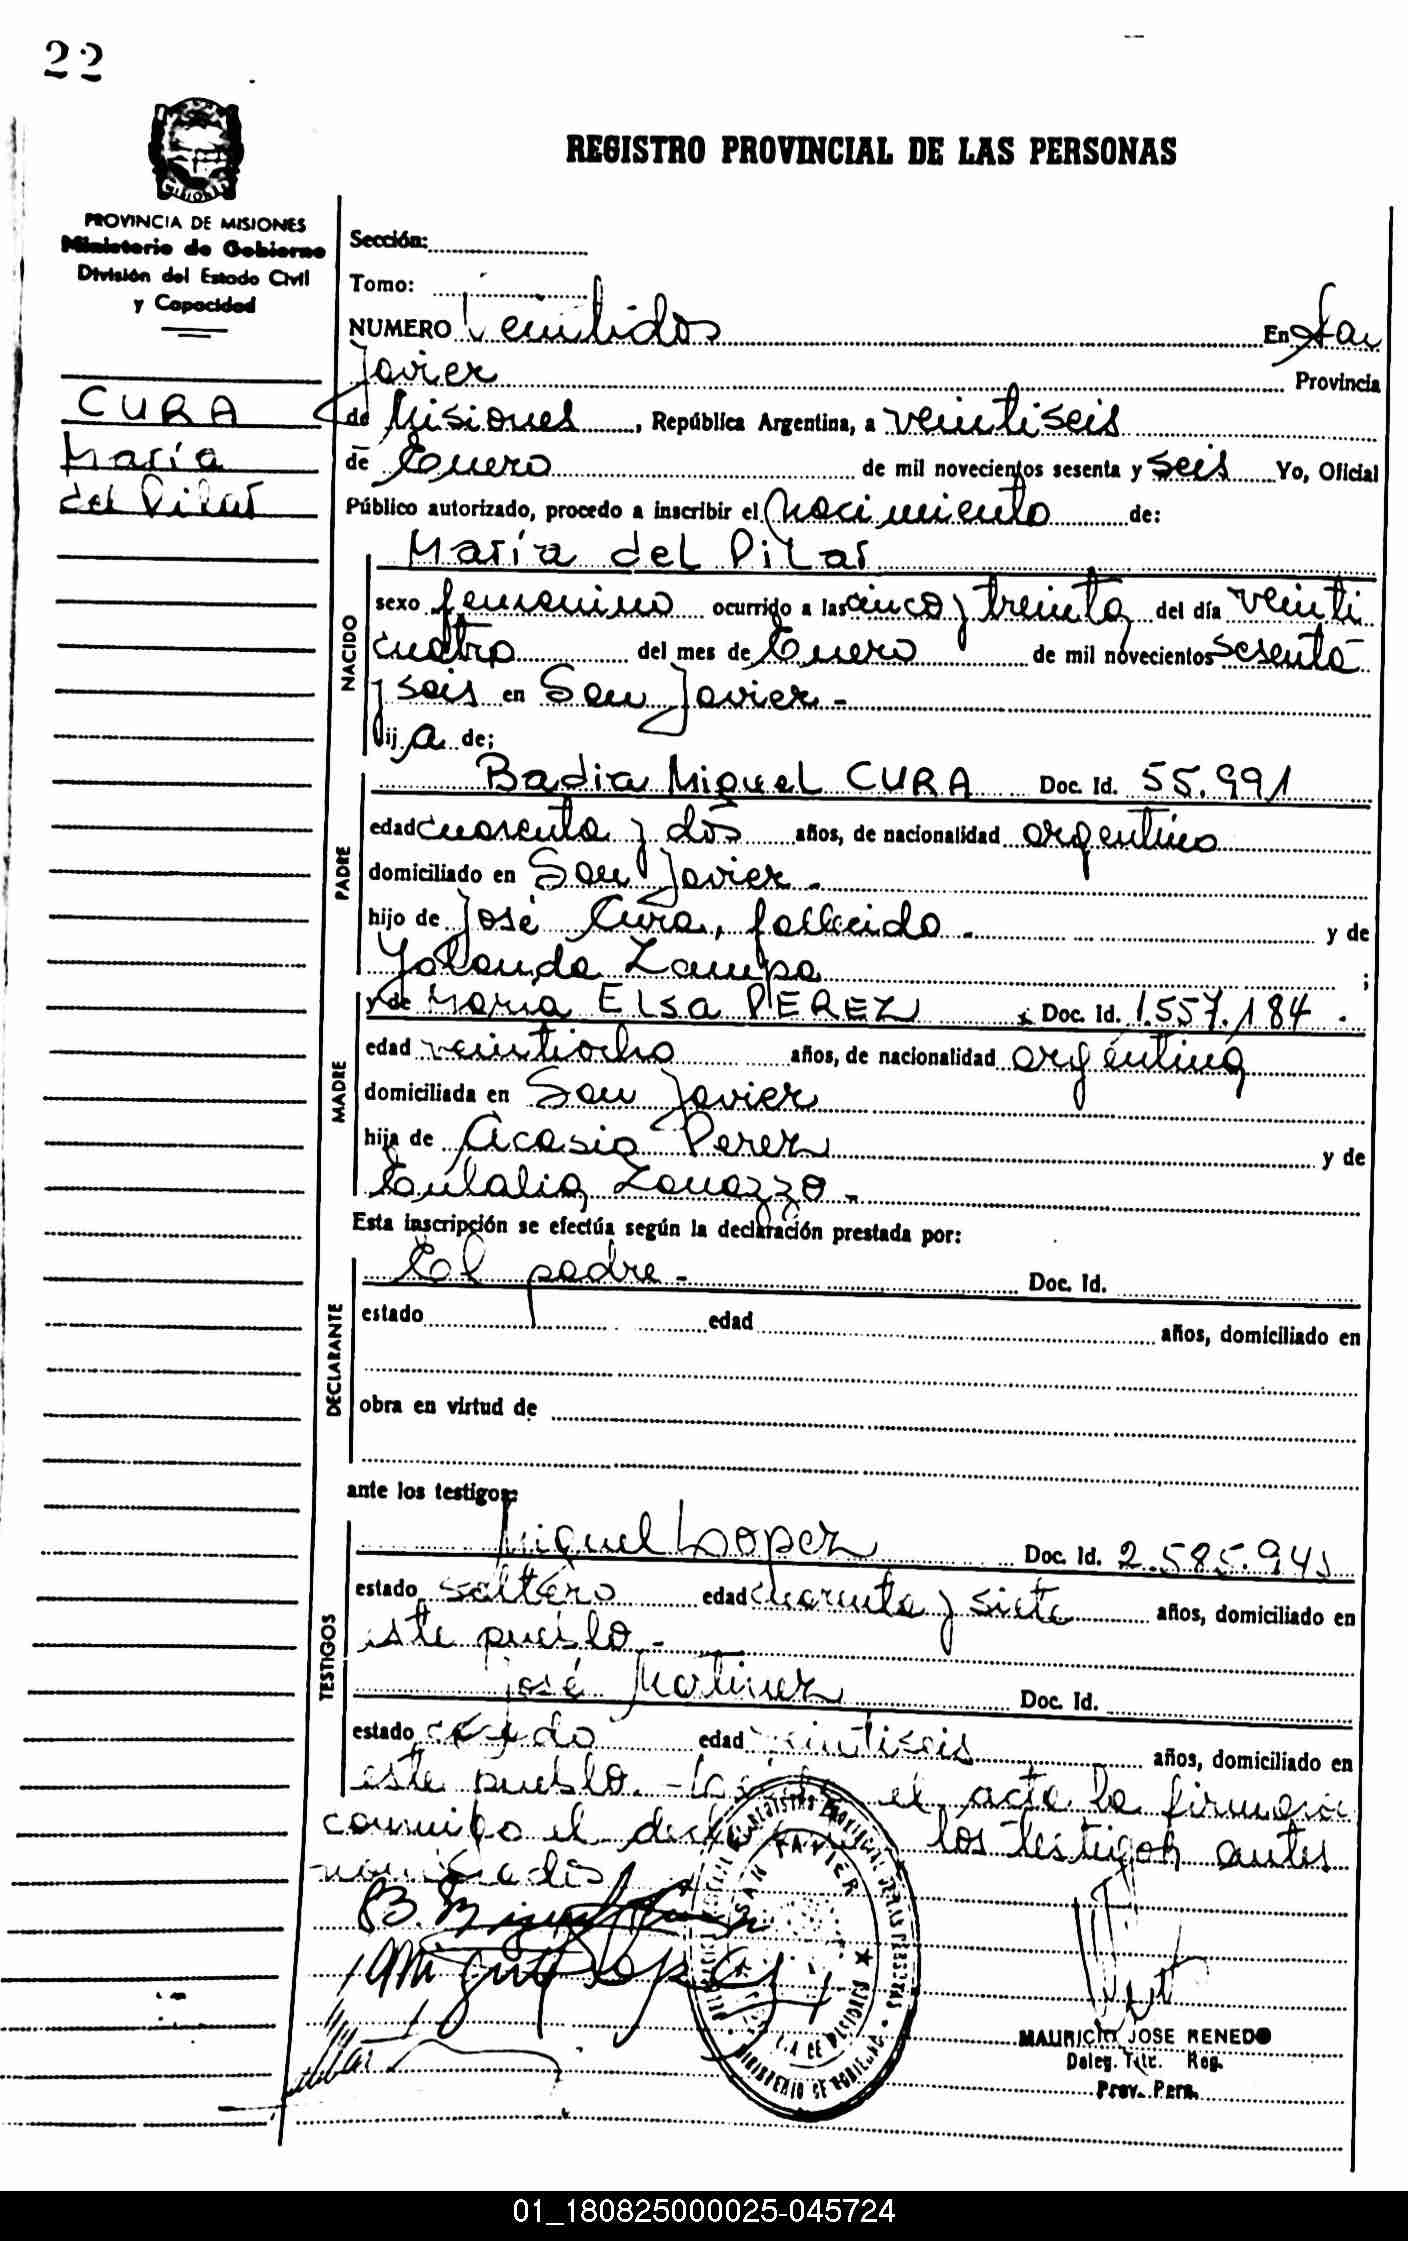 22
REGISTRO PROVINCIAL DE LAS PERSONAS
PROVINCIA DE MISIONES
Ministerio de Gobierno
División del Estado Civil
y Capacidad
CURA
María
del Pilar
Sección:
Tomo:
NUMERO Veintidos En San
Javier Provincia
de Misiones, República Argentina, a veintiseis
de Enero de mil novecientos sesenta y seis Yo, Oficial
Público autorizado, procedo a inscribir el Nacimiento de:
NACIDO
María del Pilar
sexo femenino ocurrido a las cinco y treinta del día veinti
cuatro del mes de Enero de mil novecientos sesenta
y seis en San Javier.-
hija de;
PADRE
Badia Miguel CURA Doc. Id. 55.991
edad cuarenta y dos años, de nacionalidad argentino
domiciliado en San Javier.
hijo de José Cura, fallecido.- y de
Yolanda Zampa ;
MADRE
y de María ELSA PEREZ Doc. Id. 1.557.184.
edad veintiocho años, de nacionalidad argentina
domiciliada en San Javier
hija de Acasio Perez y de
Eulalia Zanazzo.-
Esta inscripción se efectúa según la declaración prestada por:
DECLARANTE
El padre.- Doc. Id.
estado edad años, domiciliado en
obra en virtud de
ante los testigos:
TESTIGOS
Miguel Lopez Doc. Id. 2.585.941
estado soltero edad cuarenta y siete años, domiciliado en
este pueblo.-
José Martinez Doc. Id.
estado casado edad veintiseis años, domiciliado en
este pueblo.- el acta la firman
conmigo el los testigos antes
nombrados
B. Miguel Cura
Miguel Lopez
SAN JAVIER
MINISTERIO DE GOBIERNO
MAURICIO JOSE RENEDO
Deleg. Titc. Reg.
Prov. Pers.
01_180825000025-045724